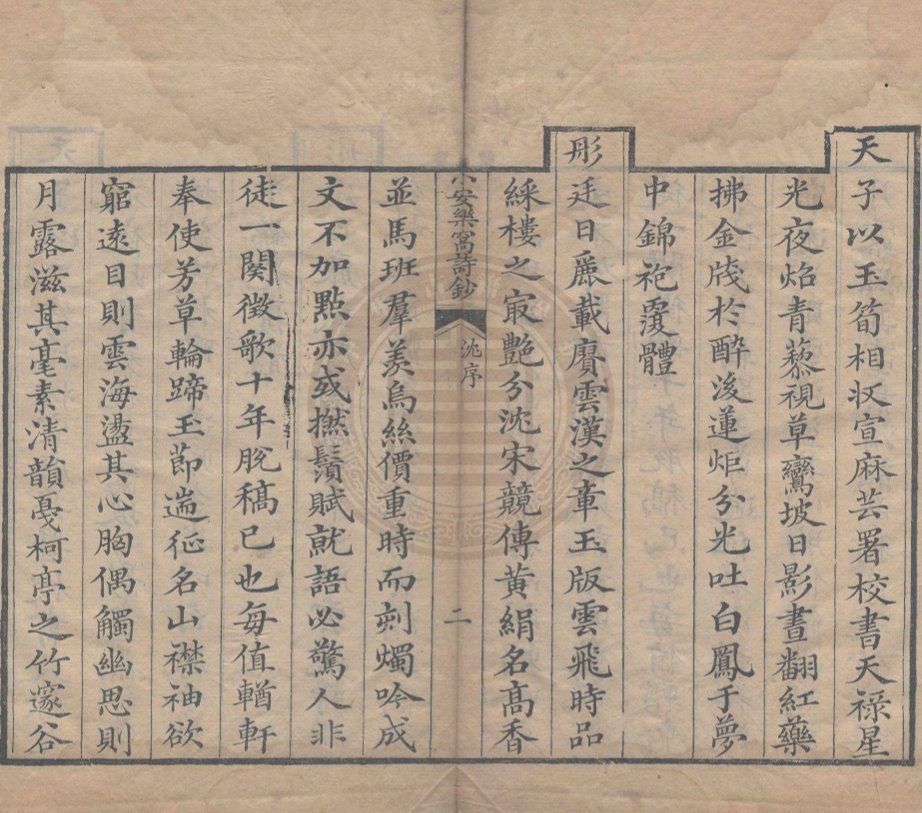 天子以玉筍相抆宣麻芸署校書天祿星
光夜焰青藜視草鸞坡日影晝翻紅藥
拂金牋於醉後蓮炬分光吐白鳳于夢
中錦袍覆體
彤廷日麗載賡雲漢之章玉版雲飛時品
綵樓之㝡艷分沈宋競傳黃絹名高香
小安樂窩詩鈔
沈序
二
並馬班羣羨烏絲價重時而刻燭吟成
文不加點亦或撚鬚賦就語必驚人非
徒一闋徵歌十年脫稿已也每值輶軒
奉使芳草輪蹄玉節遄征名山襟袖欲
窮遠目則雲海盪其心胸偶觸幽思則
月露滋其毫素清韻戛柯亭之竹邃谷